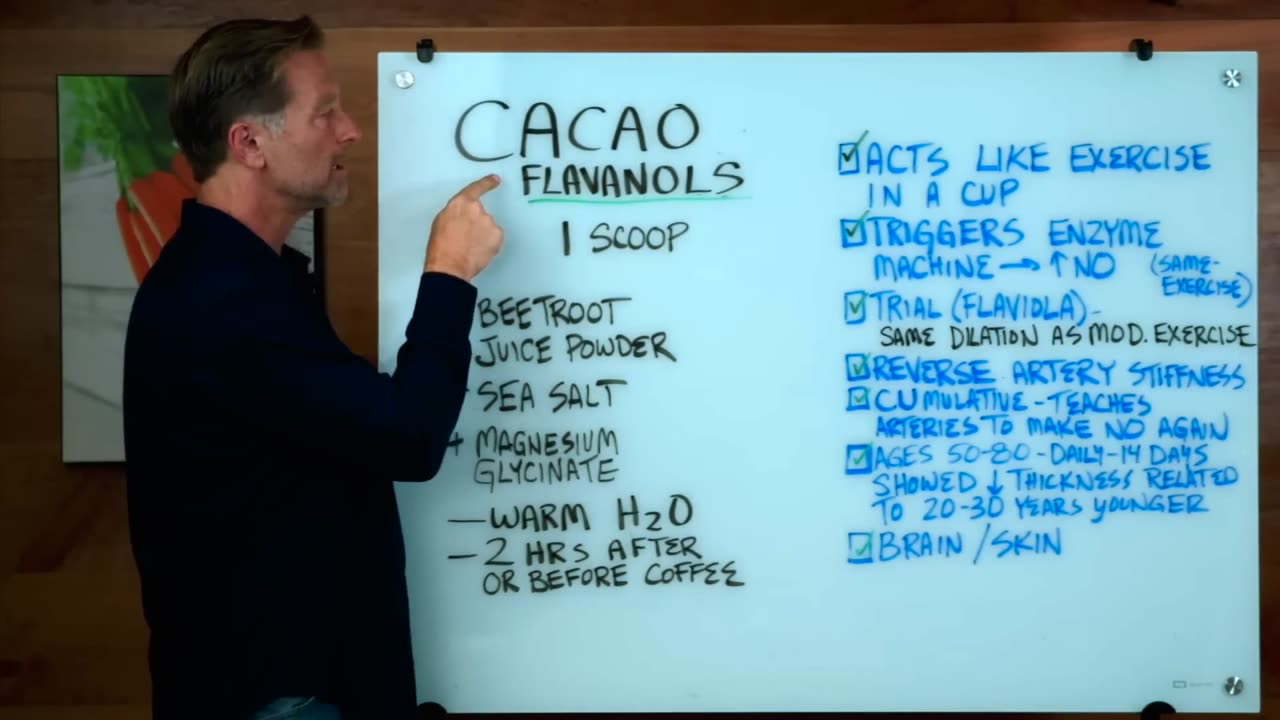 CACAO
FLAVANOLS
1 SCOOP
BEETROOT
JUICE POWDER
SEA SALT
+ MAGNESIUM
GLYCINATE
— WARM H2O
— 2 HRS AFTER
OR BEFORE COFFEE
ACTS LIKE EXERCISE
IN A CUP
TRIGGERS ENZYME
MACHINE → ↑ NO (SAME-
EXERCISE)
TRIAL (FLAVIOLA)-
SAME DILATION AS MOD. EXERCISE
REVERSE ARTERY STIFFNESS
CUMULATIVE - TEACHES
ARTERIES TO MAKE NO AGAIN
AGES 50-80 - DAILY - 14 DAYS
SHOWED ↓ THICKNESS RELATED
TO 20-30 YEARS YOUNGER
BRAIN / SKIN